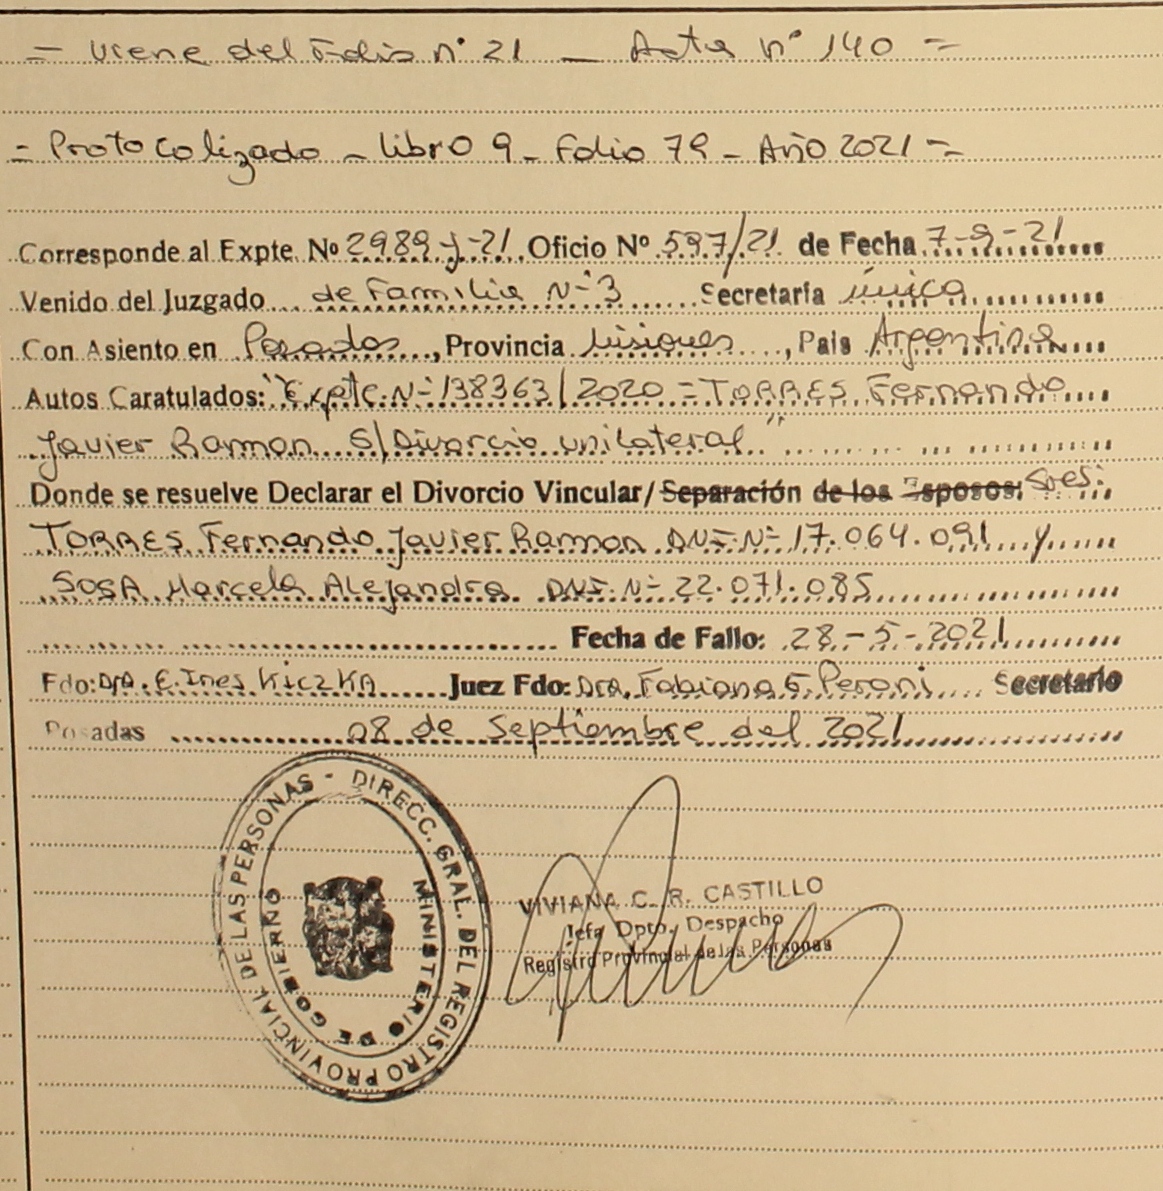 = Viene del Folio n° 21 _ Acta n° 140 =
= Protocolizado - libro 9 - Folio 79 - Año 2021 =
Corresponde al Expte. Nº 2989-J-21 Oficio Nº 597/21 de Fecha 7-9-21
Venido del Juzgado de Familia N-3 Secretaría única
Con Asiento en Posadas, Provincia Misiones, País Argentina
Autos Caratulados: "Expte. N- 138363/2020 = TORRES Fernando
Javier Ramon S/Divorcio unilateral"
Donde se resuelve Declarar el Divorcio Vincular/Separación de los Esposos: Sres:
TORRES Fernando Javier Ramon DNI. N- 17.064.091 y
SOSA Marcela Alejandra DNI. N- 22.071.085
Fecha de Fallo: 28-5-2021
Fdo: Dra. E. Ines Kiczka Juez Fdo: Dra. Fabiana E. Peroni Secretario
Posadas 08 de Septiembre del 2021
DIRECC. GRAL. DEL REGISTRO PROVINCIAL DE LAS PERSONAS -
MINISTERIO DE GOBIERNO
VIVIANA C. R. CASTILLO
Jefa Dpto. Despacho
Registro Provincial de las Personas